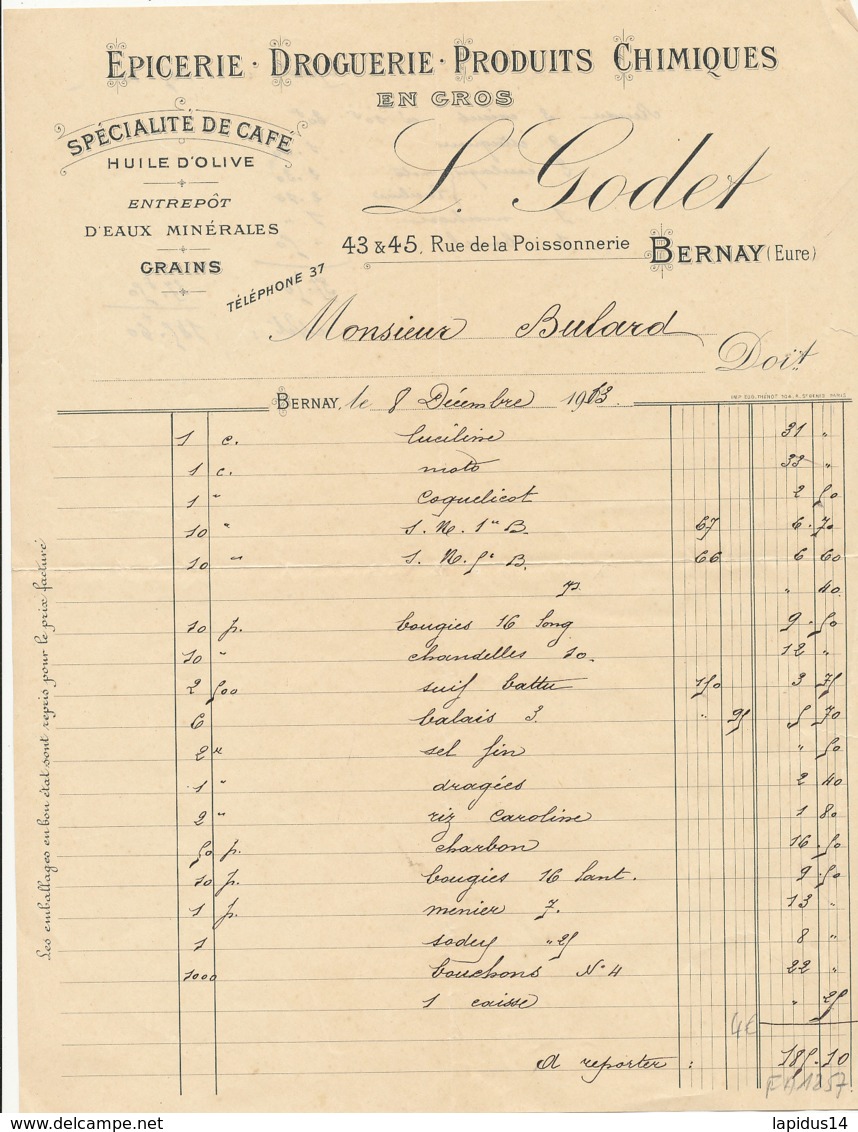 EPICERIE · DROGUERIE · PRODUITS CHIMIQUES
EN GROS
SPÉCIALITÉ DE CAFÉ
HUILE D'OLIVE
ENTREPÔT
D'EAUX MINÉRALES
GRAINS
L. Godet
43 & 45, Rue de la Poissonnerie BERNAY (Eure)
TÉLÉPHONE 37
Monsieur Bulard
Doit
BERNAY, le 8 Décembre 1913
1 c. luciline 31 "
1 c. moto 33 "
1 " coquelicot 2 50
10 " S. N. 1re B. 67 6.70
10 " S. N. 5e B. 66 6 60
" 40
10 p. bougies 16 long 9.50
10 " chandelles 10. 12 "
2 500 suif battu 150 3 75
6 balais 3. " 95 5 70
2k sel fin " 50
1 " dragées 2 40
2 " riz Caroline 1 80
50 p. charbon 16.50
10 p. bougies 16 Lant. 9.50
1 p. menier 7. 13 "
1 " 25 8 "
1000 bouchons No 4 22 "
1 caisse " 25
A reporter : 185.10
4€
FA1257
Les emballages en bon état sont repris pour le prix facturé
www.delcampe.net
lapidus14